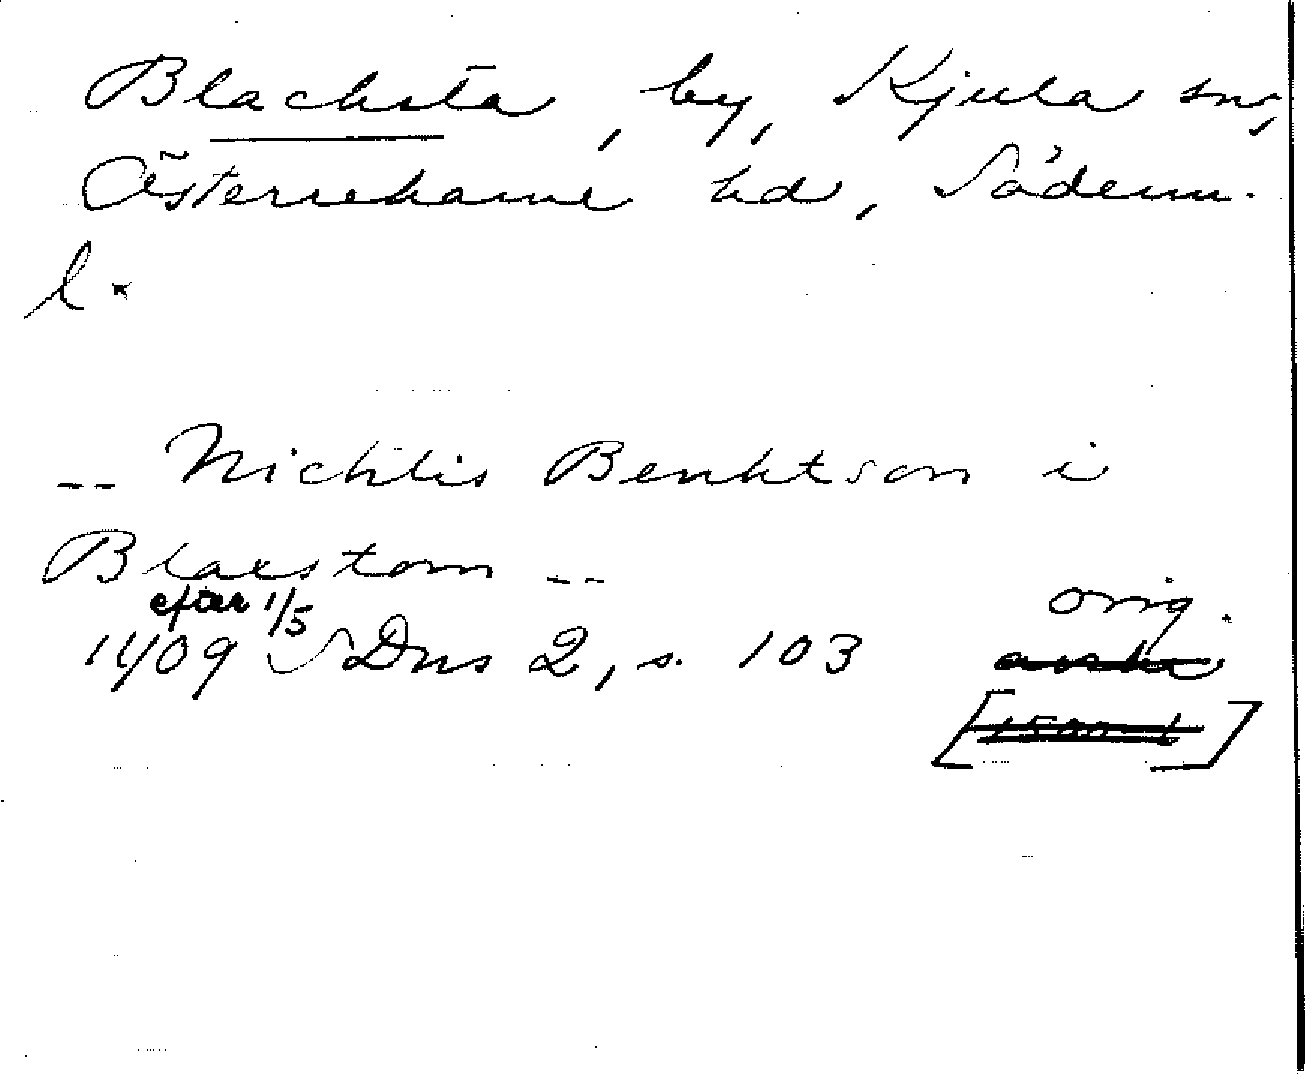 Blacksta, by, Kjula sn,
Österrekarne hd, Söderm.
l.
-- Nichlis Benktson i
Blaxstom --
efter 1/5
orig.
1409 SDns 2, s. 103